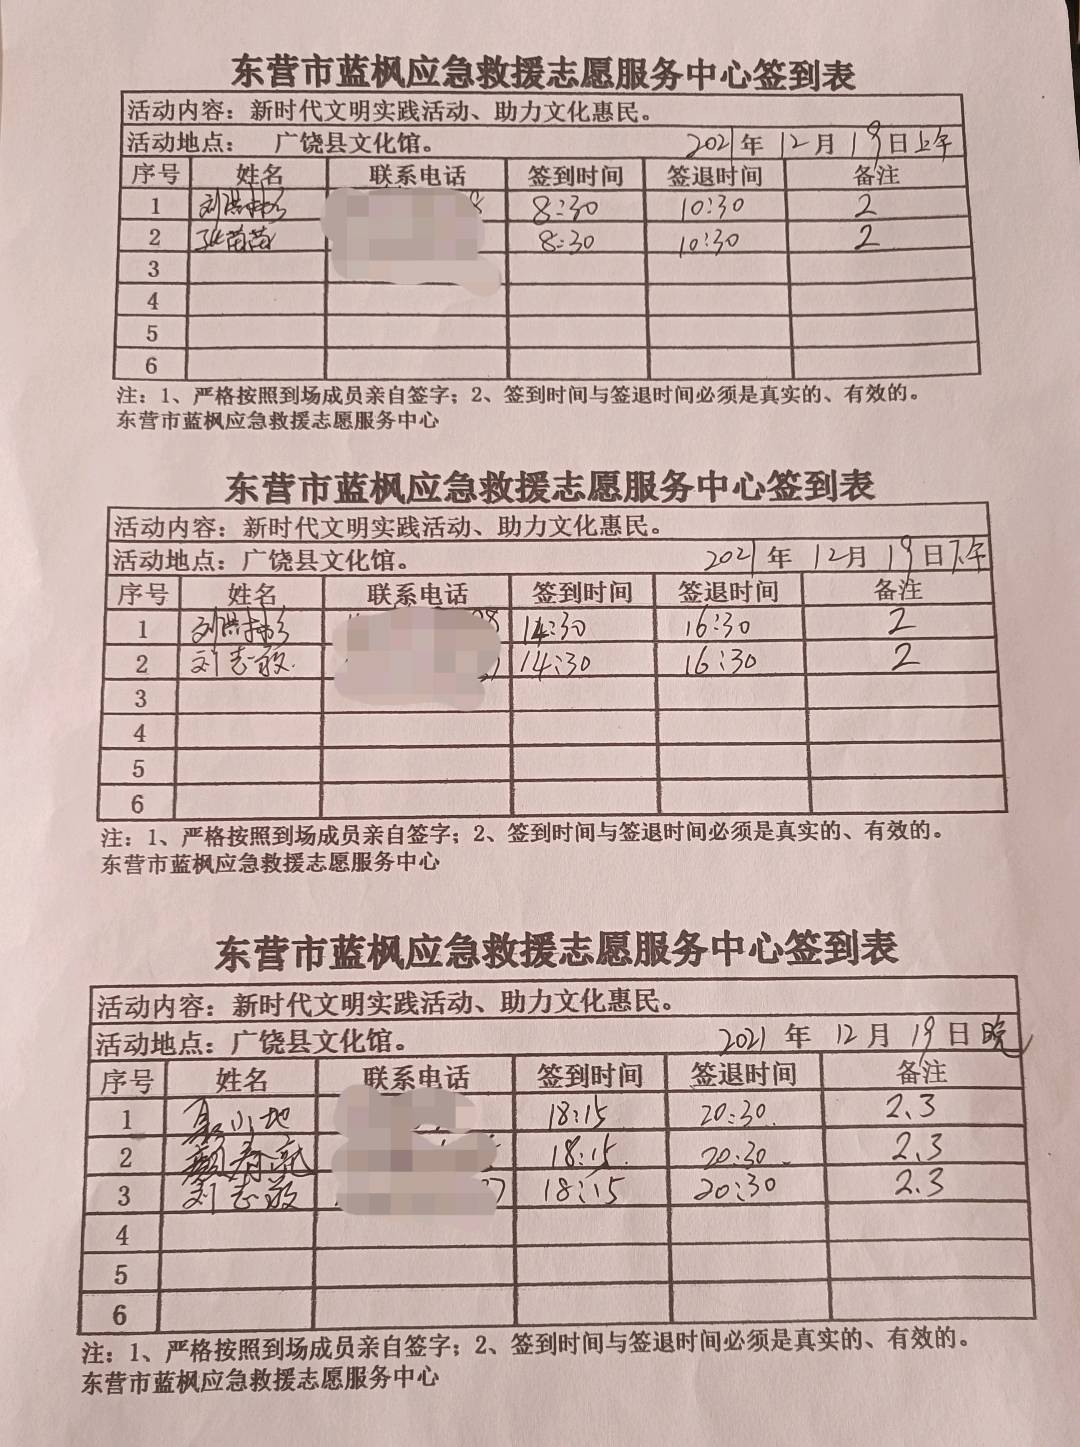 东营市蓝枫应急救援志愿服务中心签到表
活动内容：新时代文明实践活动、助力文化惠民。
活动地点： 广饶县文化馆。 2021年 12月 19日上午
序号 姓名 联系电话 签到时间 签退时间 备注
1 8:30 10:30 2
2 张苗苗 8:30 10:30 2
3
4
5
6
注：1、严格按照到场成员亲自签字；2、签到时间与签退时间必须是真实的、有效的。
东营市蓝枫应急救援志愿服务中心
东营市蓝枫应急救援志愿服务中心签到表
活动内容：新时代文明实践活动、助力文化惠民。
活动地点：广饶县文化馆。 2021年 12月 19日下午
序号 姓名 联系电话 签到时间 签退时间 备注
1 14:30 16:30 2
2 刘志敏 14:30 16:30 2
3
4
5
6
注：1、严格按照到场成员亲自签字；2、签到时间与签退时间必须是真实的、有效的。
东营市蓝枫应急救援志愿服务中心
东营市蓝枫应急救援志愿服务中心签到表
活动内容：新时代文明实践活动、助力文化惠民。
活动地点：广饶县文化馆。 2021 年 12月 19日晚
序号 姓名 联系电话 签到时间 签退时间 备注
1 18:15 20:30 2.3
2 18:15 20:30 2.3
3 刘志敏 18:15 20:30 2.3
4
5
6
注：1、严格按照到场成员亲自签字；2、签到时间与签退时间必须是真实的、有效的。
东营市蓝枫应急救援志愿服务中心